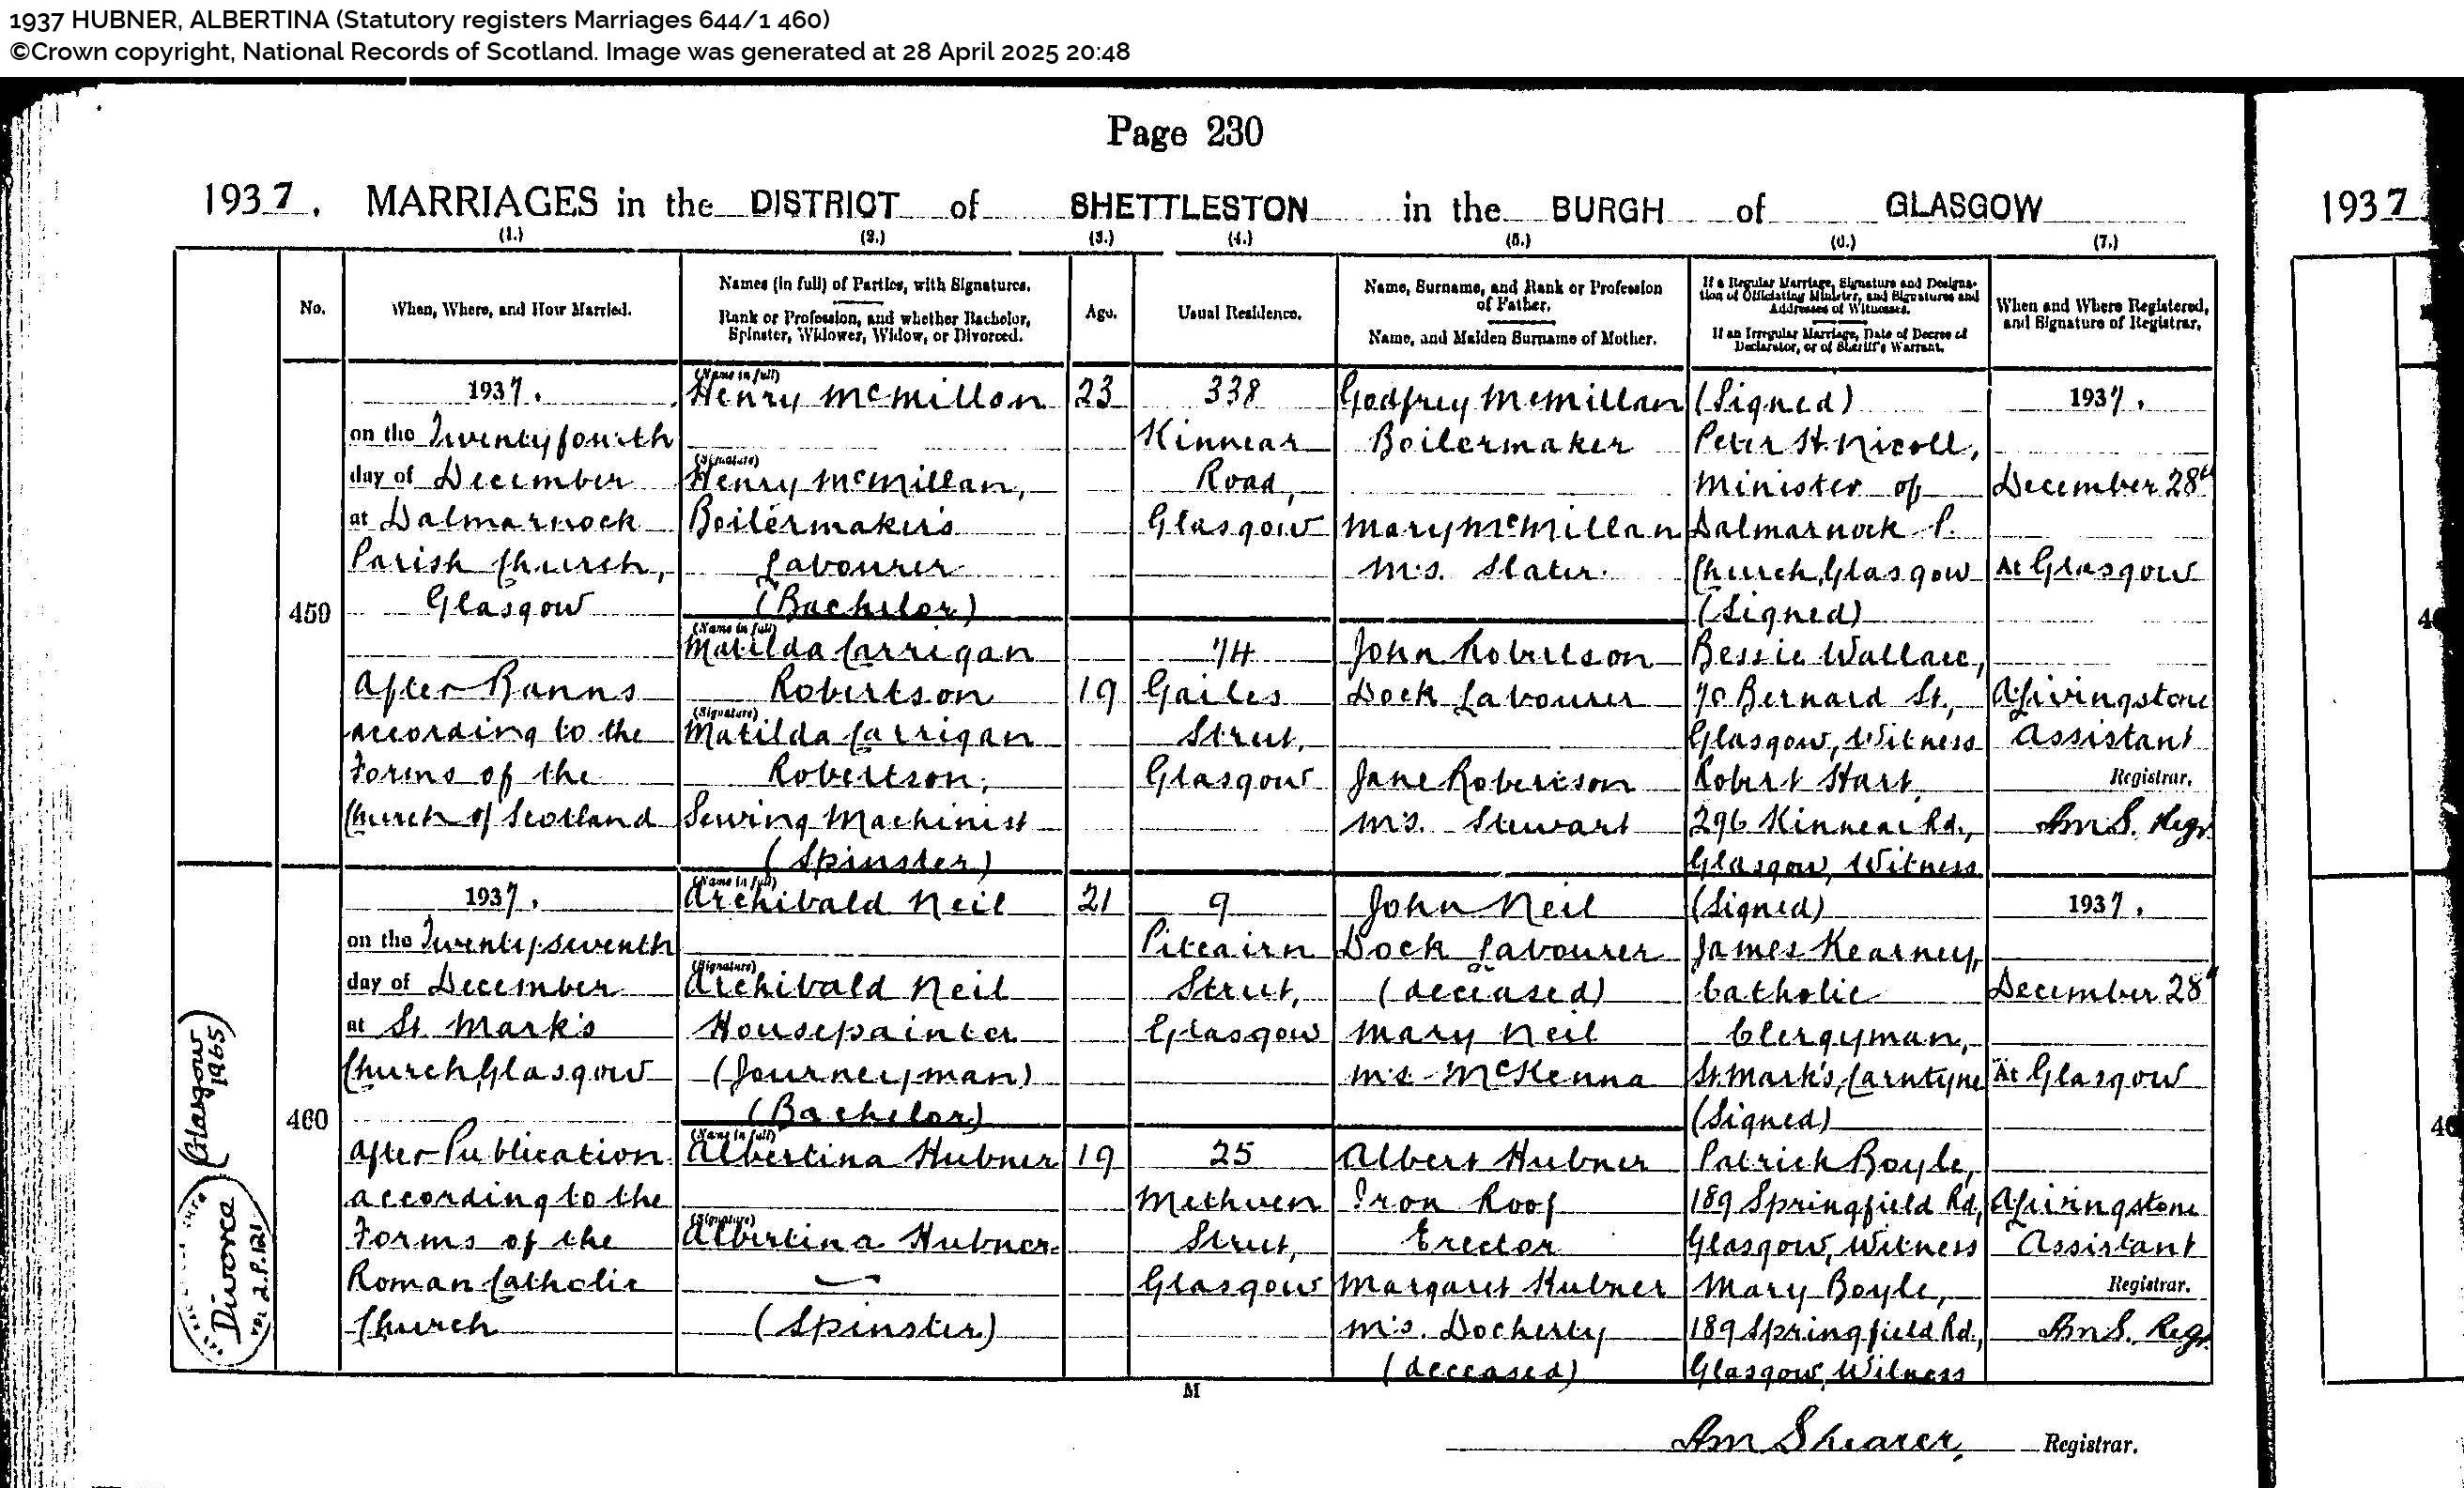 1937 HUBNER, ALBERTINA (Statutory registers Marriages 644/1 460)
©Crown copyright, National Records of Scotland. Image was generated at 28 April 2025 20:48
Page 230
1937. MARRIAGES in the DISTRICT of SHETTLESTON in the BURGH of GLASGOW
1937
(1.) (2.) (3.) (4.) (5.) (6.) (7.)
No.
When, Where, and How Married.
Names (in full) of Parties, with Signatures.
Rank or Profession, and whether Bachelor,
Spinster, Widower, Widow, or Divorced.
Age.
Usual Residence.
Name, Surname, and Rank or Profession
of Father.
Name, and Maiden Surname of Mother.
If a Regular Marriage, Signature and Designa-
tion of Officiating Minister, and Signatures and
Addresses of Witnesses.
If an Irregular Marriage, Date of Decree of
Declarator, or of Sheriff's Warrant.
When and Where Registered,
and Signature of Registrar.
459
1937.
on the Twentyfourth
day of December
at Dalmarnock
Parish Church,
Glasgow
After Banns
according to the
Forms of the
Church of Scotland
(Name in full)
Henry McMillan
(Signature)
Henry McMillan,
Boilermaker's
Labourer
(Bachelor)
(Name in full)
Matilda Carrigan
Robertson
(Signature)
Matilda Carrigan
Robertson,
Sewing Machinist
(Spinster)
23
19
338
Kinnear
Road,
Glasgow
74
Gailes
Street,
Glasgow
Godfrey McMillan
Boilermaker
Mary McMillan
m.s. Slater.
John Robertson
Dock Labourer
Jane Robertson
m.s. Stewart
(Signed)
Peter H. Nicoll,
Minister of
Dalmarnock P.
Church, Glasgow
(Signed)
Bessie Wallace,
70 Bernard St.,
Glasgow, Witness
Robert Hart,
296 Kinnear Rd.,
Glasgow, Witness
1937.
December 28th
At Glasgow
A Livingstone
Assistant
Registrar.
AmS. Regr.
460
1937.
on the Twenty-seventh
day of December
at St. Mark's
Church, Glasgow
After Publication
according to the
Forms of the
Roman Catholic
Church
(Name in full)
Archibald Neil
(Signature)
Archibald Neil
Housepainter
(Journeyman)
(Bachelor)
(Name in full)
Albertina Hubner
(Signature)
Albertina Hubner.
(Spinster)
21
19
9
Pitcairn
Street,
Glasgow
25
Methven
Street,
Glasgow
John Neil
Dock Labourer
(deceased)
Mary Neil
m.s. McKenna
Albert Hubner
Iron Roof
Erector
Margaret Hubner
m.s. Docherty
(deceased)
(Signed)
James Kearney,
Catholic
Clergyman,
St. Mark's, Carntyne
(Signed)
Patrick Boyle,
189 Springfield Rd.,
Glasgow, Witness
Mary Boyle,
189 Springfield Rd.,
Glasgow, Witness
1937.
December 28th
At Glasgow
A Livingstone
Assistant
Registrar.
AmS. Regr.
Divorce
Vol 2. P. 121
(Glasgow)
1965)
M
Am Shearer, Registrar.